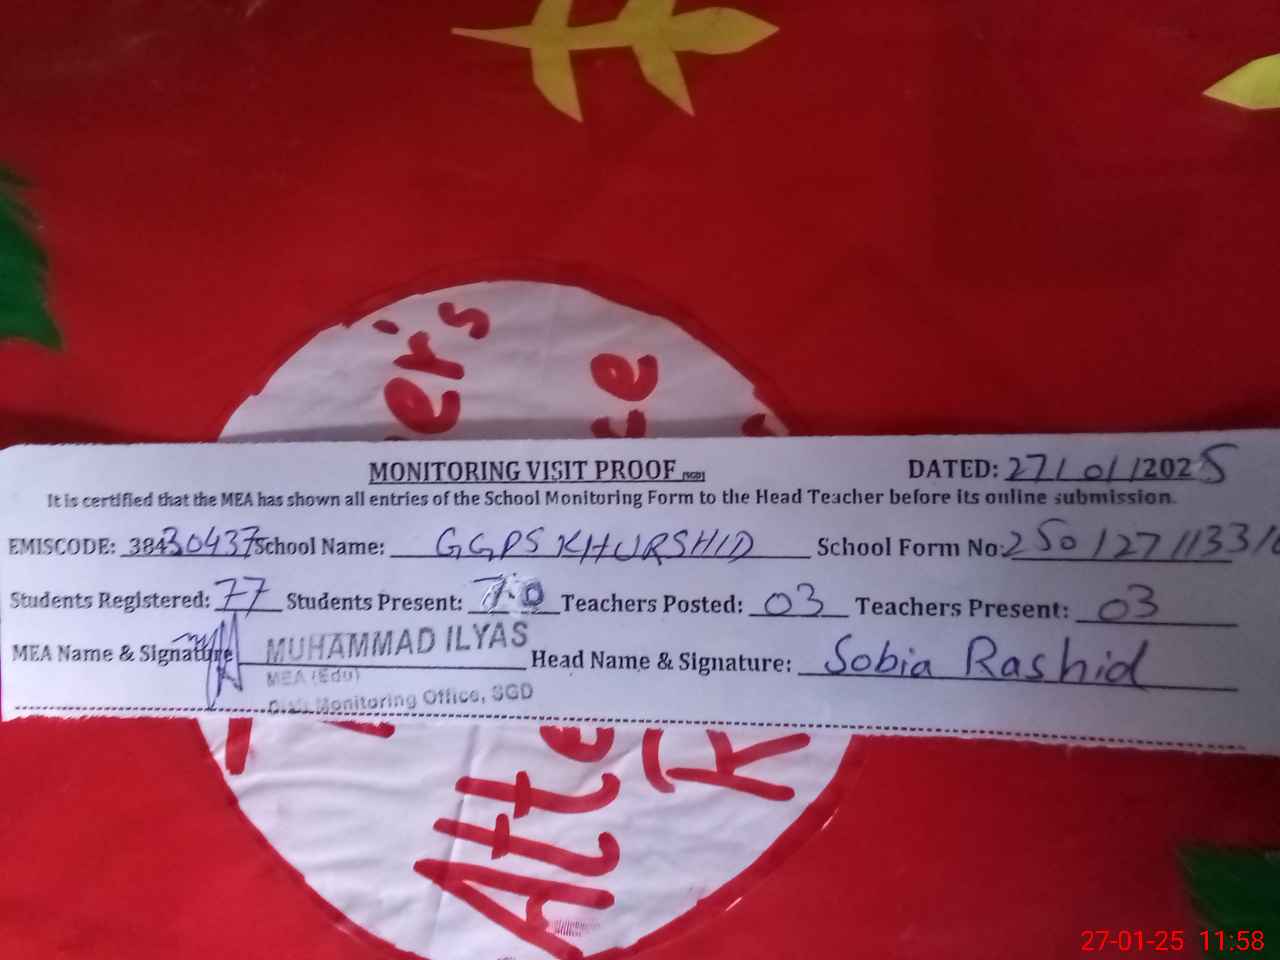 er's
ce
MONITORING VISIT PROOF (SGD) DATED: 27/01/2025
It is certified that the MEA has shown all entries of the School Monitoring Form to the Head Teacher before its online submission.
EMISCODE: 38430437 School Name: GGPS KHURSHID School Form No:
Students Registered: 77 Students Present: 70 Teachers Posted: 03 Teachers Present: 03
MEA Name & Signature MUHAMMAD ILYAS Head Name & Signature: Sobia Rashid
MEA (Edu)
Monitoring Office, SGD
Atte
R
27-01-25 11:58